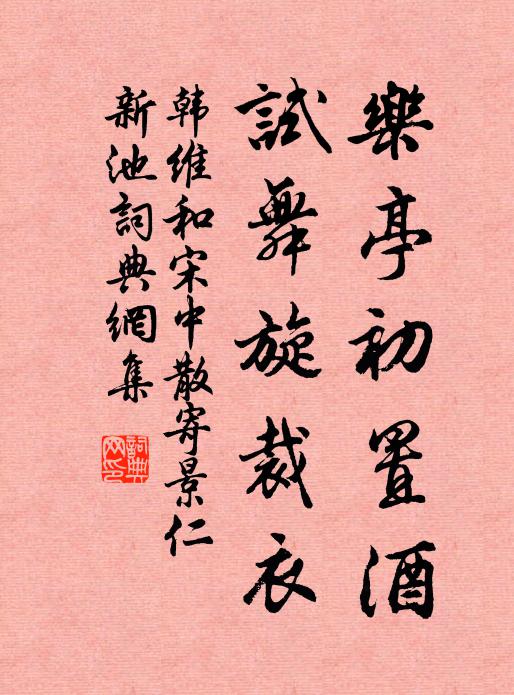 樂亭初置酒
試舞旋裁衣
韩維和宋中散寄景仁
新池詞典網集
詞典
网印